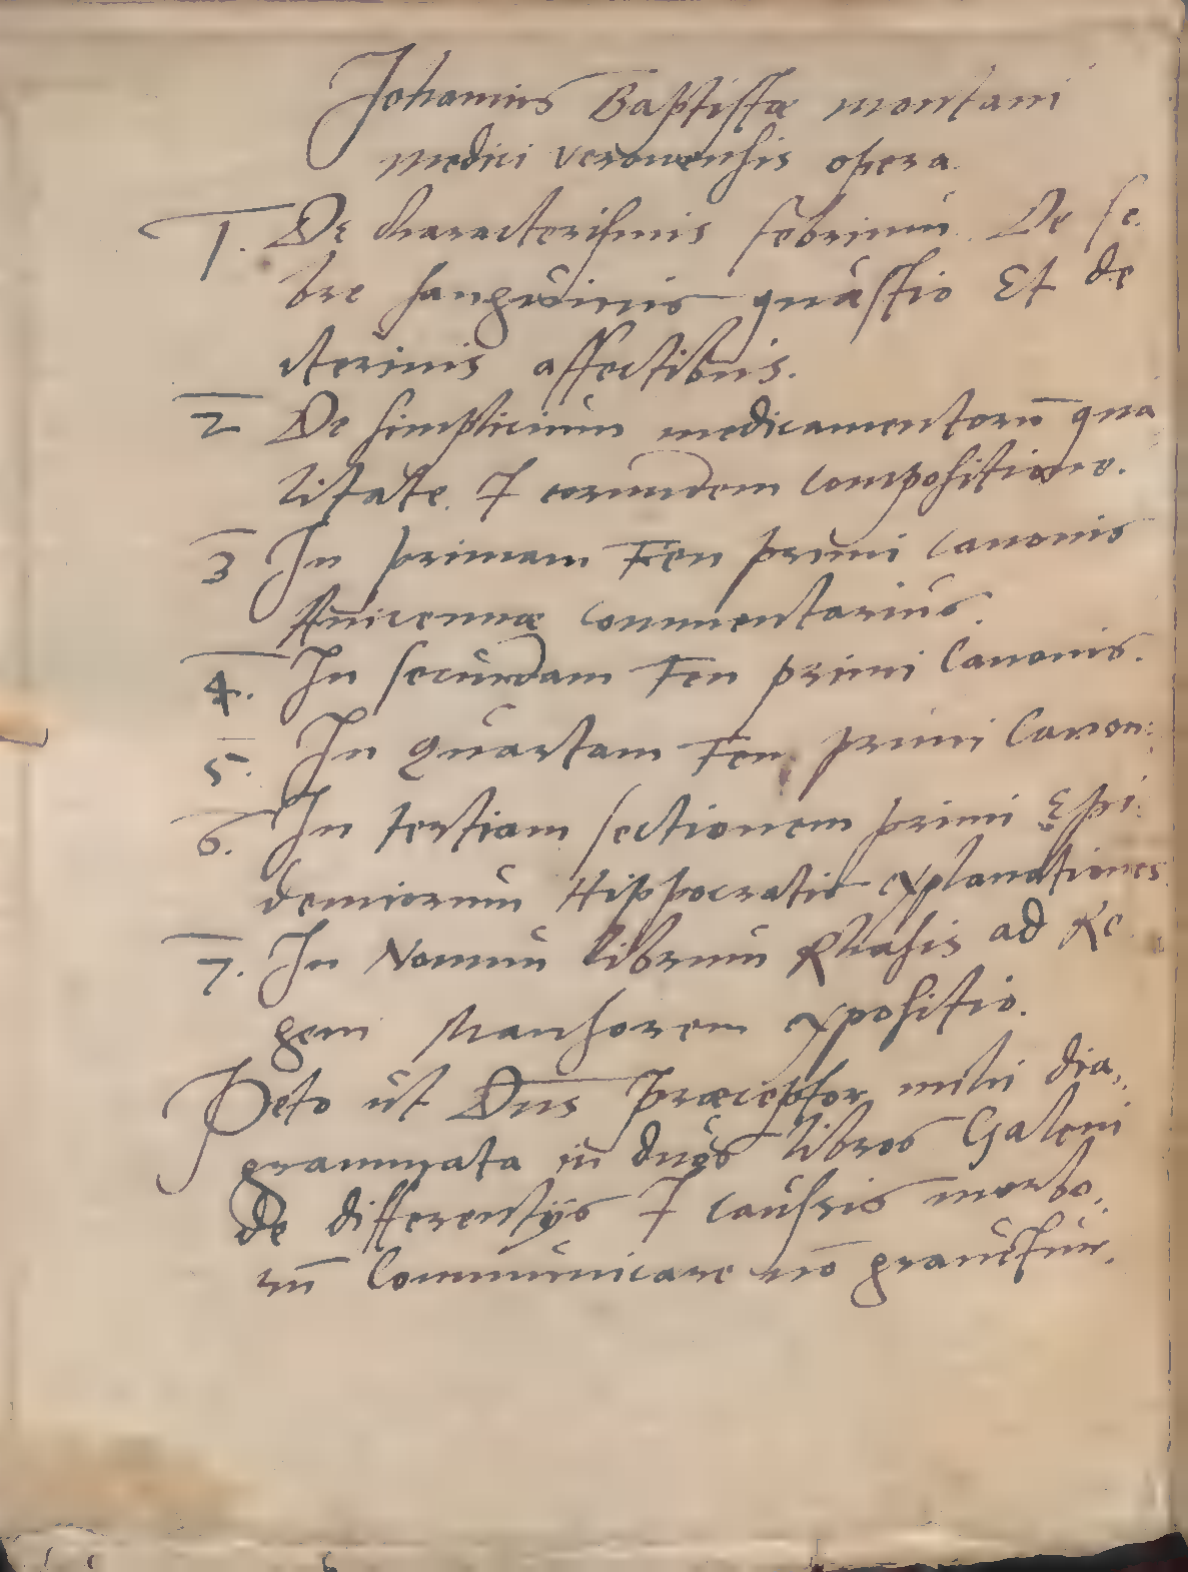 Johannis Baptistæ montani
medici veronensis opera
1. De characterismis febrium. De fe,
bre sanguinis quæstio Et de
cterinis affectibus.
2 De simplicium medicamentorū qua
litate et eorumdem compositione.
3 In primam Fen primi canonis
Auicennæ commentarius.
4. In secundam Fen primi Canonis.
5. In quartam Fen primi Canon:
6. In tertiam sectionem primi Epi
demiorum Hippocratis explanationes
7. In Nonum librum Rhasis ad Re
gem Mansorem expositio.
Peto ut Dns Præceptor mihi dia,,
grammata in duos libros Galeni
de differentijs et caussis morbo,
rū Communicare nō grauetur.